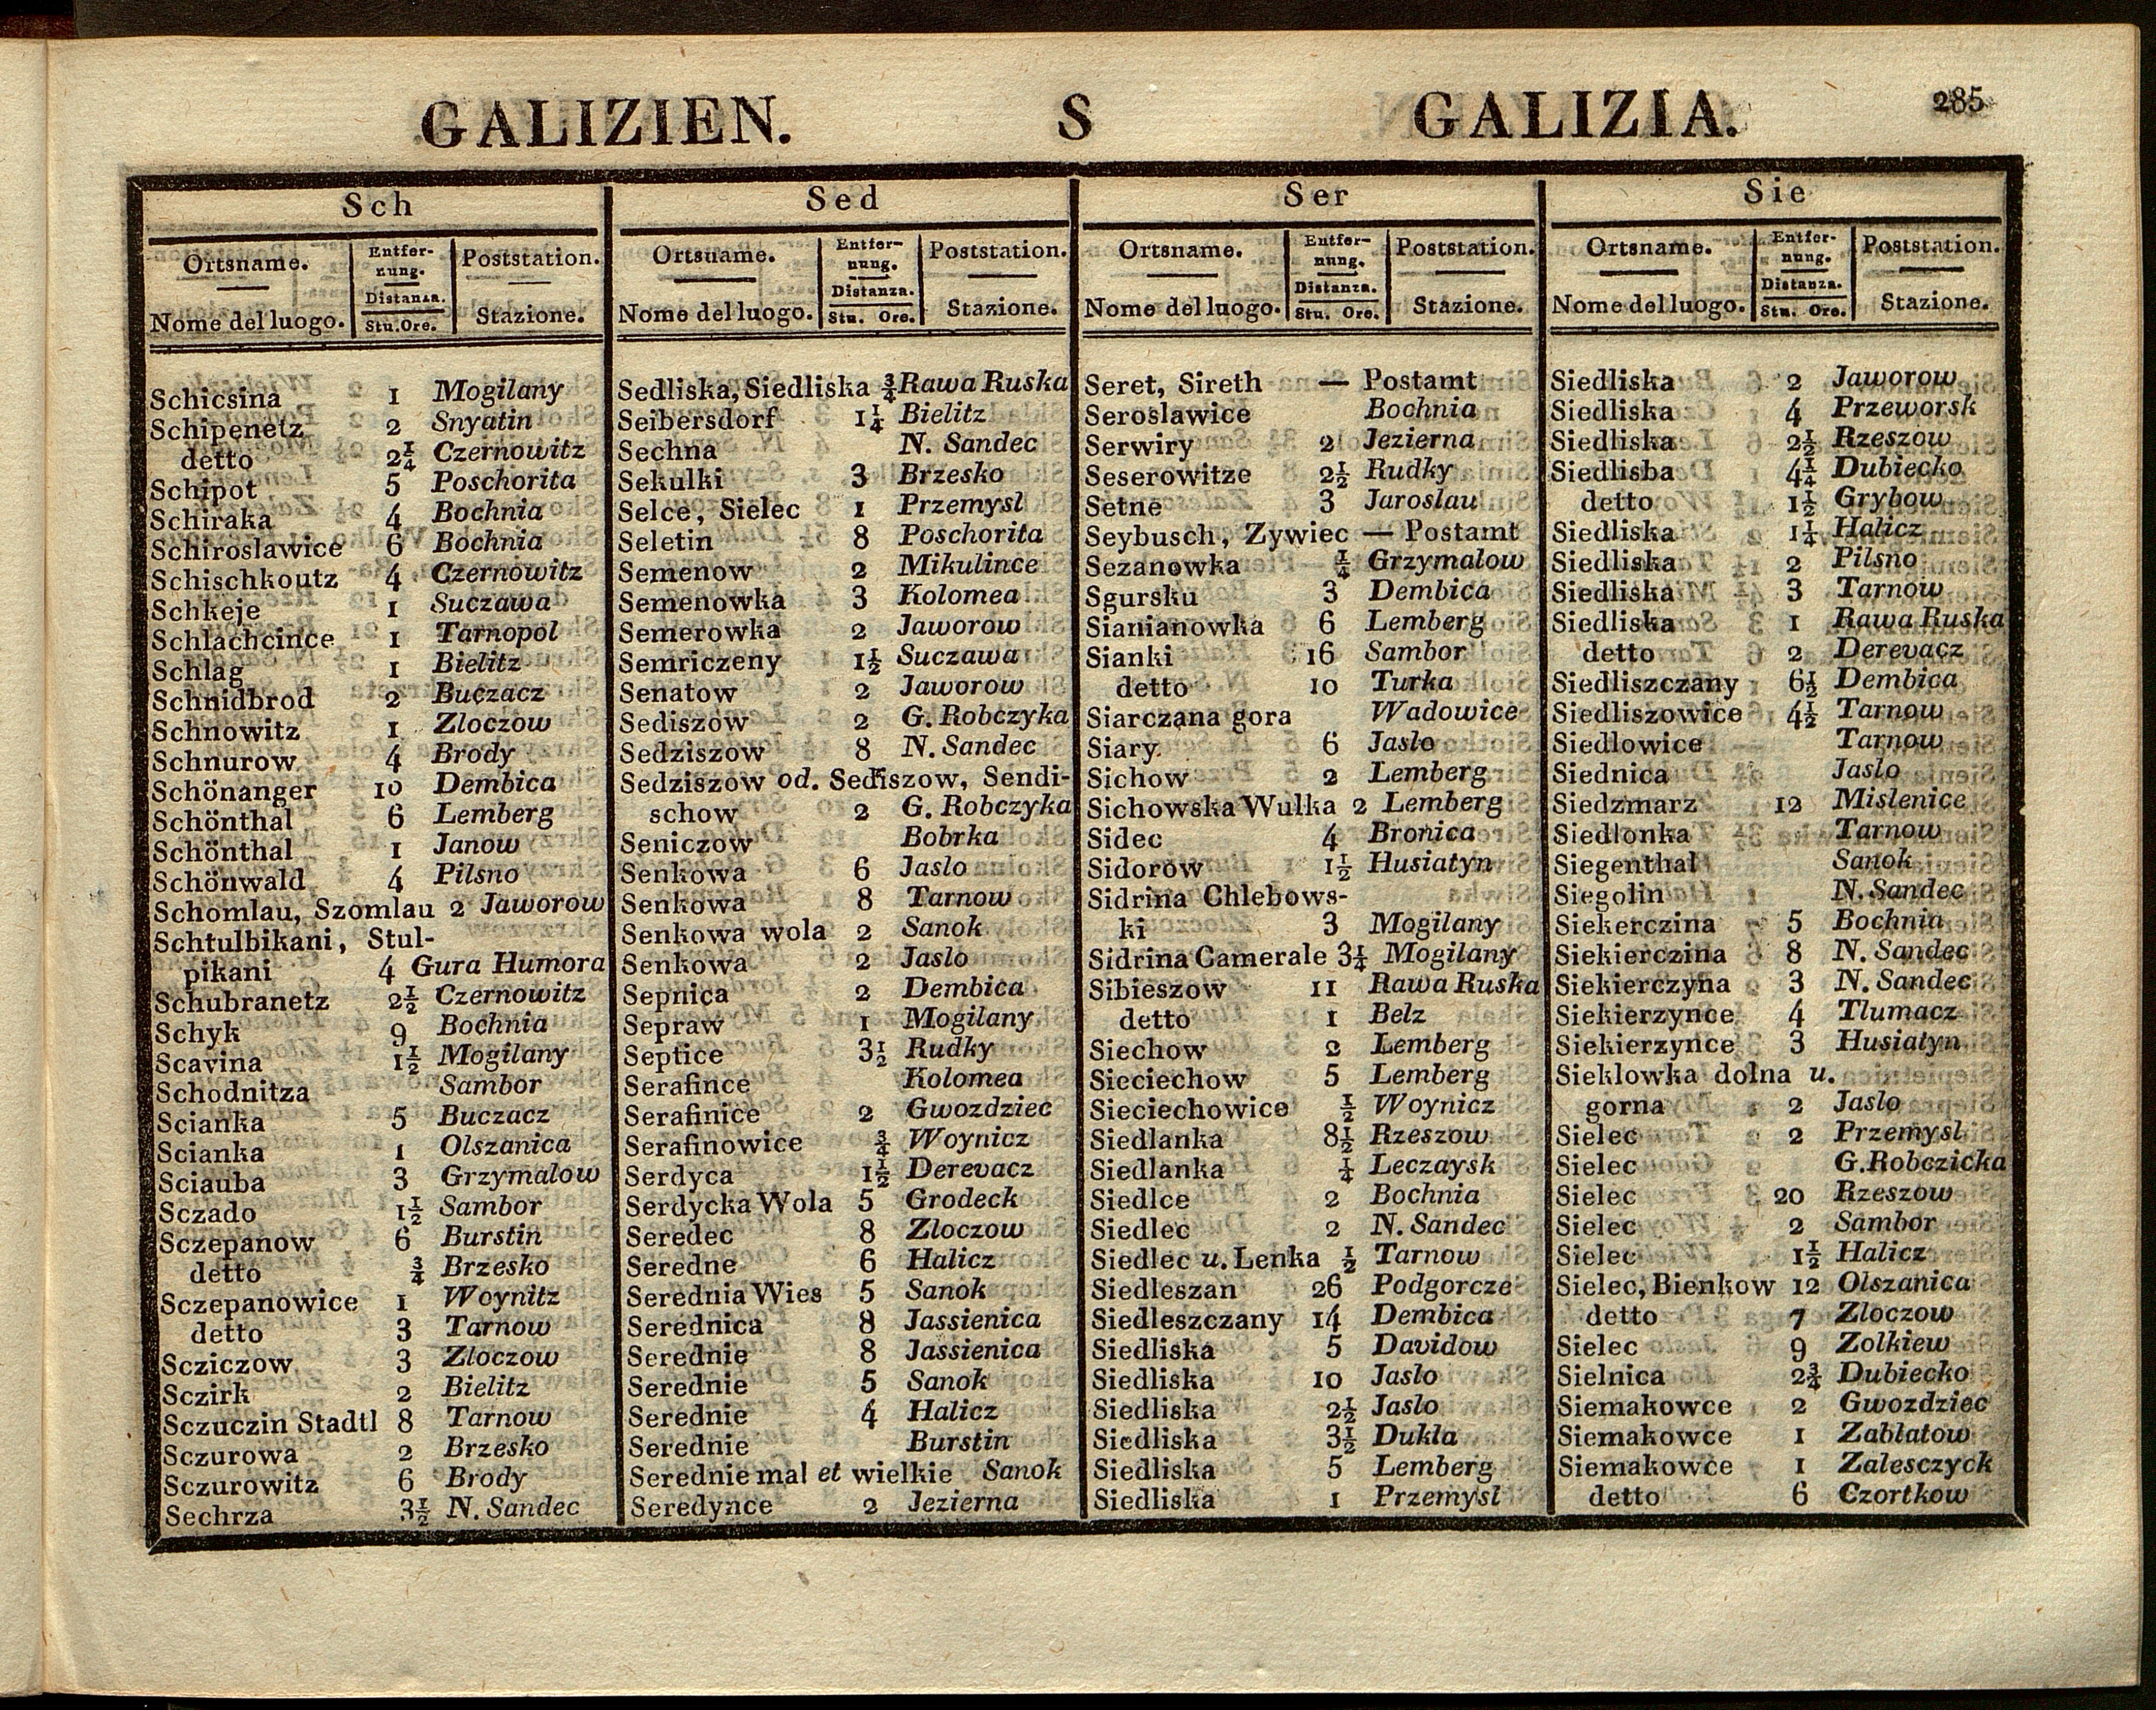 GALIZIEN. S GALIZIA. 285
Sch
Ortsname. Entfer- Poststation.
nung.
Distanza.
Nome del luogo. Stu. Ore. Stazione.
Schicsina 1 Mogilany
Schipenetz 2 Snyatin
detto 2¼ Czernowitz
Schipot 5 Poschorita
Schiraka 4 Bochnia
Schiroslawice 6 Bochnia
Schischkoutz 4 Czernowitz
Schkeje 1 Suczawa
Schlachcince 1 Tarnopol
Schlag 1 Bielitz
Schnidbrod 2 Buczacz
Schnowitz 1 Zloczow
Schnurow 4 Brody
Schönanger 10 Dembica
Schönthal 6 Lemberg
Schönthal 1 Janow
Schönwald 4 Pilsno
Schomlau, Szomlau 2 Jaworow
Schtulbikani, Stul-
pikani 4 Gura Humora
Schubranetz 2½ Czernowitz
Schyk 9 Bochnia
Scavina 1½ Mogilany
Schodnitza Sambor
Scianka 5 Buczacz
Scianka 1 Olszanica
Sciauba 3 Grzymalow
Sczado 1½ Sambor
Sczepanow 6 Burstin
detto ¾ Brzesko
Sczepanowice 1 Woynitz
detto 3 Tarnow
Scziczow 3 Zloczow
Sczirk 2 Bielitz
Sczuczin Stadtl 8 Tarnow
Sczurowa 2 Brzesko
Sczurowitz 6 Brody
Sechrza 3½ N. Sandec
Sed
Ortsname. Entfer- Poststation.
nung.
Distanza.
Nome del luogo. Stu. Ore. Stazione.
Sedliska, Siedliska ¾ Rawa Ruska
Seibersdorf 1¼ Bielitz
Sechna N. Sandec
Sekulki 3 Brzesko
Selce, Sielec 1 Przemysl
Seletin 8 Poschorita
Semenow 2 Mikulince
Semenowka 3 Kolomea
Semerowka 2 Jaworow
Semriczeny 1½ Suczawa
Senatow 2 Jaworow
Sediszow 2 G. Robczyka
Sedziszow 8 N. Sandec
Sedziszow od. Sediszow, Sendi-
schow 2 G. Robczyka
Seniczow Bobrka
Senkowa 6 Jaslo
Senkowa 8 Tarnow
Senkowa wola 2 Sanok
Senkowa 2 Jaslo
Sepnica 2 Dembica
Sepraw 1 Mogilany
Septice 3½ Rudky
Serafince Kolomea
Serafinice 2 Gwozdziec
Serafinowice ¾ Woynicz
Serdyca 1½ Derevacz
Serdycka Wola 5 Grodeck
Seredec 8 Zloczow
Seredne 6 Halicz
Serednia Wies 5 Sanok
Serednica 8 Jassienica
Serednie 8 Jassienica
Serednie 5 Sanok
Serednie 4 Halicz
Serednie Burstin
Serednie mal et wielkie Sanok
Seredynce 2 Jezierna
Ser
Ortsname. Entfer- Poststation.
nung.
Distanza.
Nome del luogo. Stu. Ore. Stazione.
Seret, Sireth — Postamt
Seroslawice Bochnia
Serwiry 2 Jezierna
Seserowitze 2½ Rudky
Setne 3 Jaroslau
Seybusch, Zywiec — Postamt
Sezanowka ¼ Grzymalow
Sgursku 3 Dembica
Sianianowka 6 Lemberg
Sianki 16 Sambor
detto 10 Turka
Siarczana gora Wadowice
Siary 6 Jaslo
Sichow 2 Lemberg
Sichowska Wulka 2 Lemberg
Sidec 4 Bronica
Sidorow 1½ Husiatyn
Sidrina Chlebows-
ki 3 Mogilany
Sidrina Camerale 3¼ Mogilany
Sibieszow 11 Rawa Ruska
detto 1 Belz
Siechow 2 Lemberg
Sieciechow 5 Lemberg
Sieciechowice ½ Woynicz
Siedlanka 8½ Rzeszow
Siedlanka ¼ Leczaysk
Siedlce 2 Bochnia
Siedlec 2 N. Sandec
Siedlec u. Lenka ½ Tarnow
Siedleszan 26 Podgorcze
Siedleszczany 14 Dembica
Siedliska 5 Davidow
Siedliska 10 Jaslo
Siedliska 2½ Jaslo
Siedliska 3½ Dukla
Siedliska 5 Lemberg
Siedliska 1 Przemysl
Sie
Ortsname. Entfer- Poststation.
nung.
Distanza.
Nome del luogo. Stu. Ore. Stazione.
Siedliska 2 Jaworow
Siedliska 4 Przeworsk
Siedliska 2½ Rzeszow
Siedlisba 4¼ Dubiecko
detto 1½ Grybow
Siedliska 1¼ Halicz
Siedliska 2 Pilsno
Siedliska 3 Tarnow
Siedliska 1 Rawa Ruska
detto 2 Derevacz
Siedliszczany 6½ Dembica
Siedliszowice 4½ Tarnow
Siedlowice Tarnow
Siednica Jaslo
Siedzmarz 12 Mislenice
Siedlonka Tarnow
Siegenthal Sanok
Siegolin N. Sandec
Siekerczina 5 Bochnia
Siekierczina 8 N. Sandec
Siekierczyna 3 N. Sandec
Siekierzynce 4 Tlumacz
Siekierzynce 3 Husiatyn
Sieklowka dolna u.
gorna 2 Jaslo
Sielec 2 Przemysl
Sielec G. Robczicka
Sielec 20 Rzeszow
Sielec 2 Sambor
Sielec 1½ Halicz
Sielec, Bienkow 12 Olszanica
detto 7 Zloczow
Sielec 9 Zolkiew
Sielnica 2¾ Dubiecko
Siemakowce 2 Gwozdziec
Siemakowce 1 Zablatow
Siemakowce 1 Zalesczyck
detto 6 Czortkow